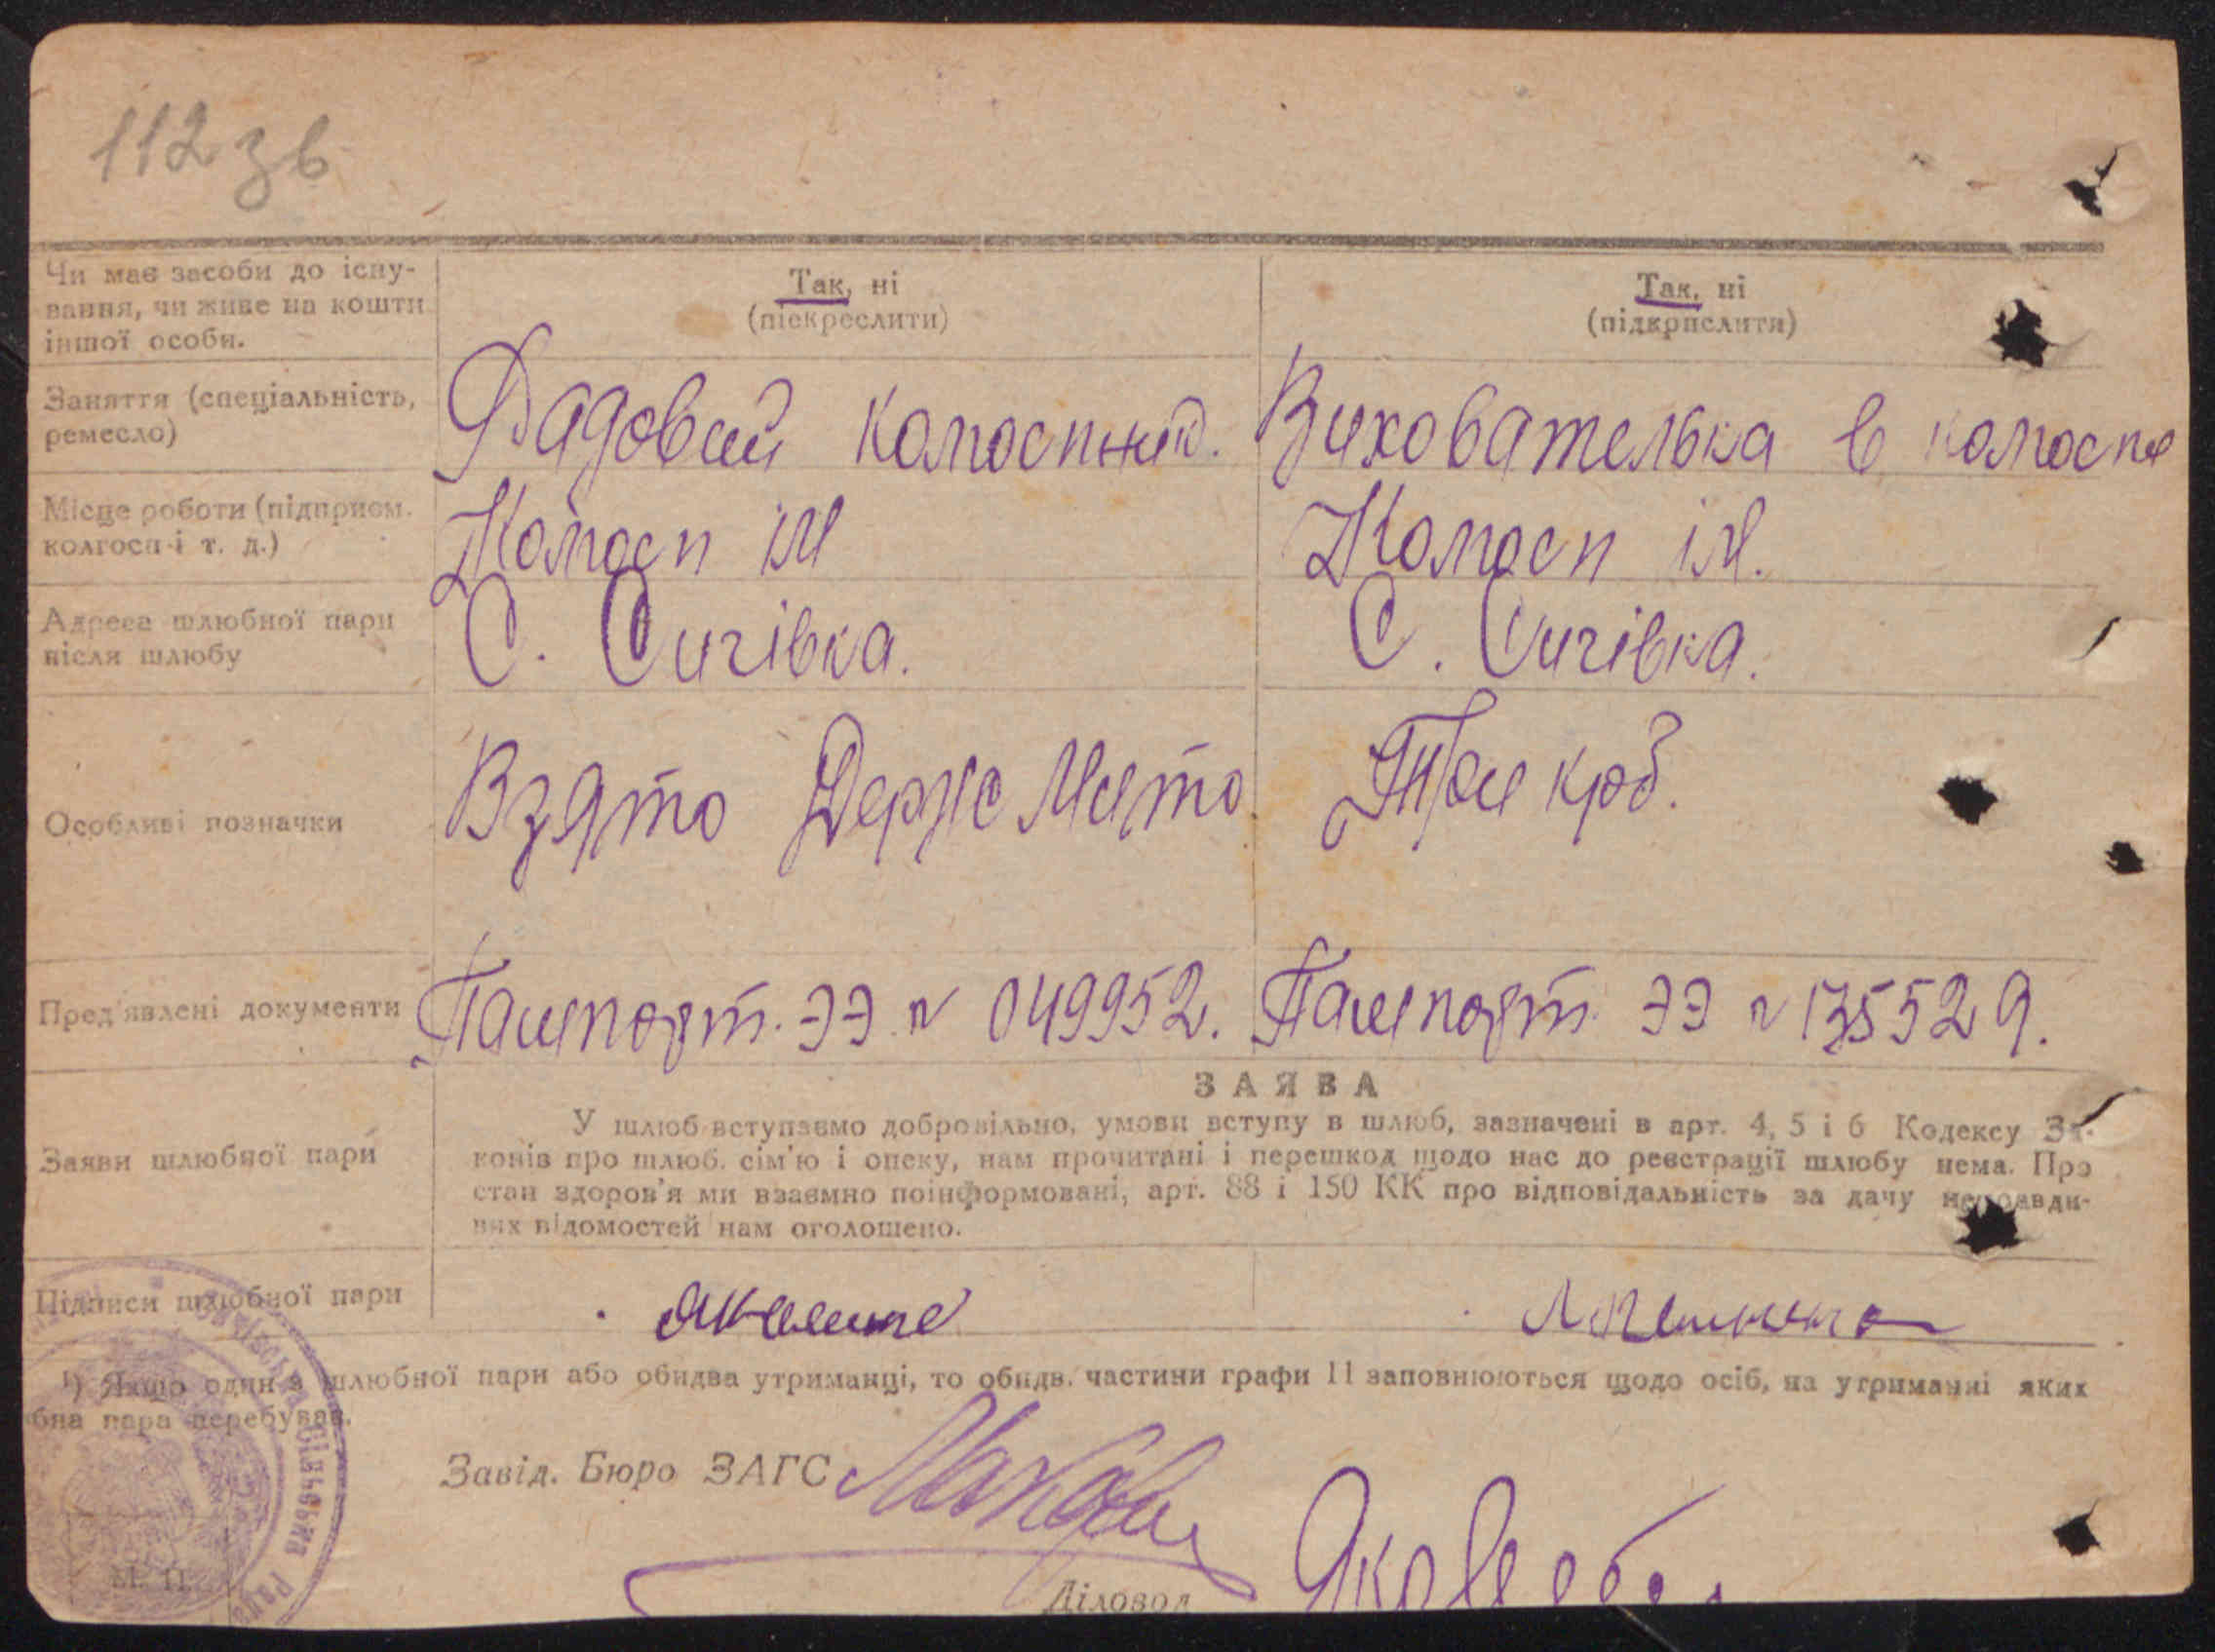 112 зв
Чи має засоби до існу-
вання, чи живе на кошти
іншої особи.
Так, ні
(піскреслити)
Так, ні
(підкрислити)
Заняття (спеціальність,
ремесло)
Рядовий колгоспник.
Вихователька в колгоспі
Місце роботи (підприєм.
колгосп і т. д.)
Колгосп ім
Колгосп ім.
Адреса шлюбної пари
після шлюбу
С. Сичівка.
С. Сичівка.
Особливі позначки
Взято Держ Мито
Три крб.
Пред'явлені документи
Пашпорт. ЭЭ № 049952.
Пашпорт ЭЭ № 135529.
Заяви шлюбної пари
ЗАЯВА
У шлюб вступаємо добровільно, умови вступу в шлюб, зазначені в арт. 4, 5 і 6 Кодексу За-
конів про шлюб. сім'ю і опеку, нам прочитані і перешкод щодо нас до реєстрації шлюбу нема. Про
стан здоров'я ми взаємно поінформовані, арт. 88 і 150 КК про відповідальність за дачу неправди-
вих відомостей нам оголошено.
Підписи шлюбної пари
¹) Якщо один з шлюбної пари або обидва утриманці, то обидв. частини графи 11 заповнюються щодо осіб, на утриманні яких
бна пара перебуває.
Завід. Бюро ЗАГС
М. П.
Діловод
сільська Рада